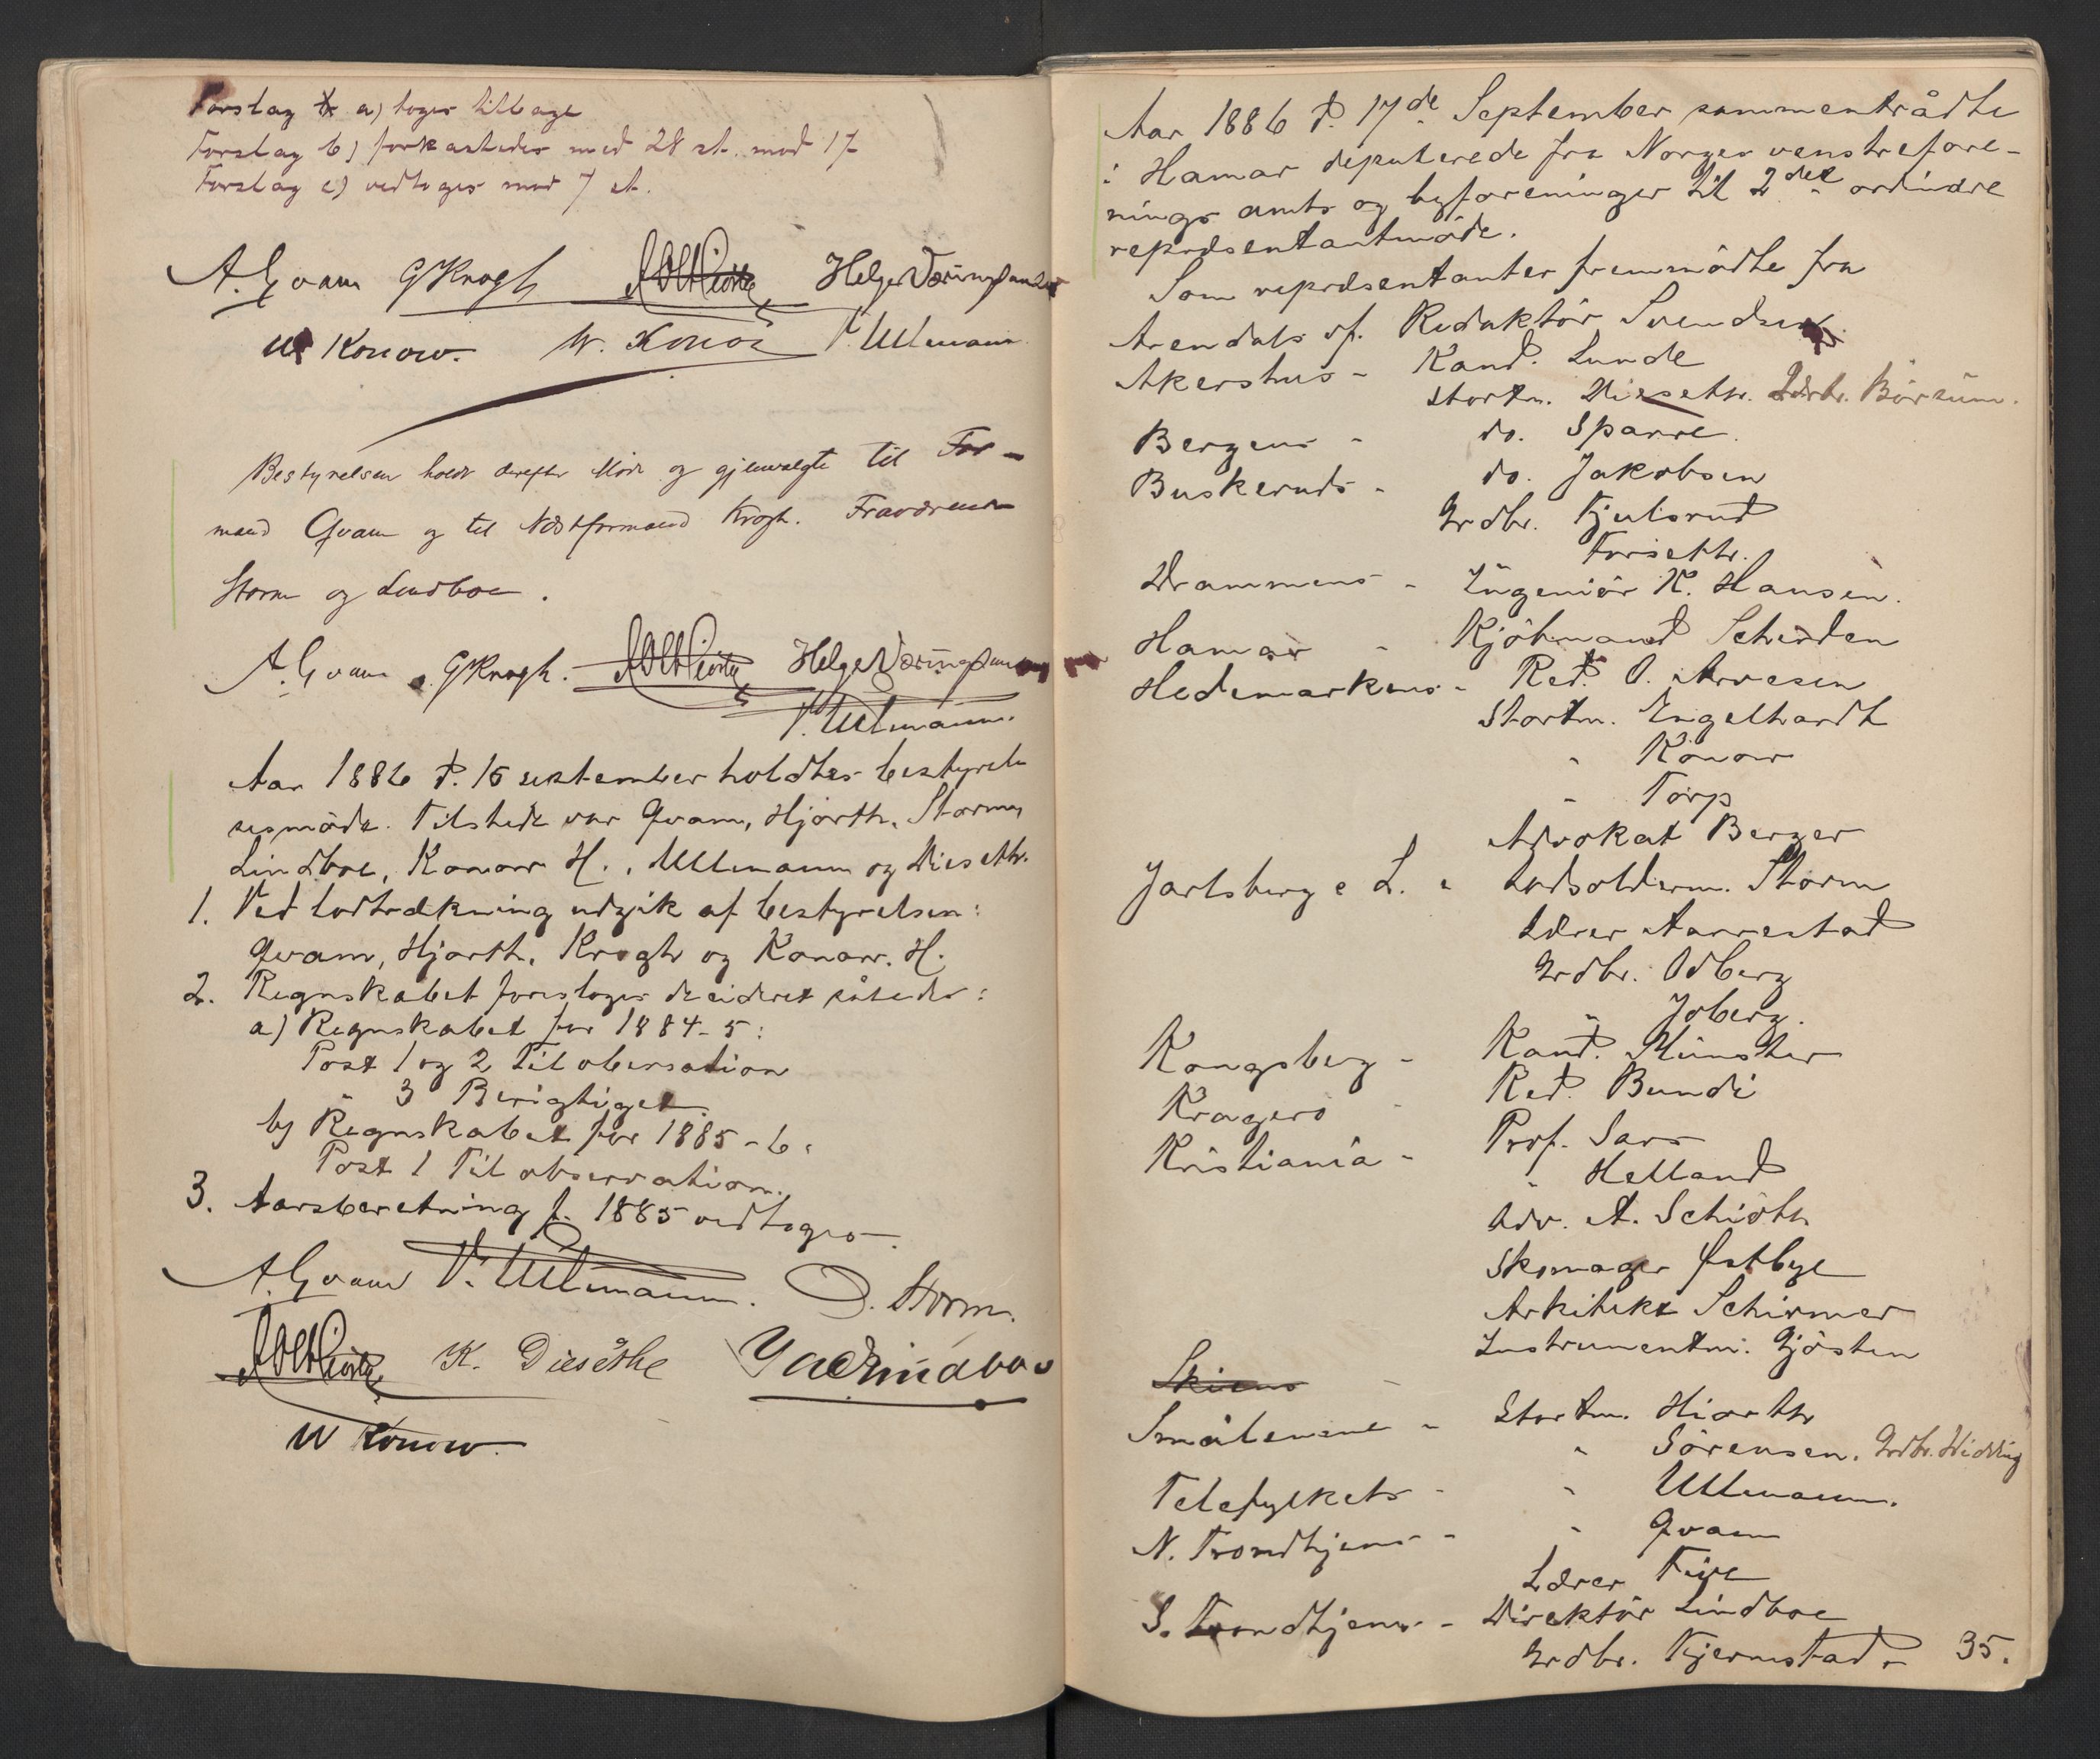 Forslag a) toges tilbage
Forslag b) forkastedes med 28 st. mod 17
Forslag c) vedtoges mod 7 st.
A. Qvam GKrogh Helge Væringsaasen
W Konow. W. Konow V. Ullmann
Bestyrelsen holdt derefter Möde og gjenvalgte til For-
mand Qvam og til Næstformand Krogh. Fraværende
Storm og Lindboe.
A. Qvam GKrogh. Helge Væringsaasen
V. Ullmann.
Aar 1886 d. 16 september holdtes bestyrel-
sesmöde. Tilstede var Qvam, Hjorth, Storm,
Lindboe, Konow H., Ullmann og Dieseth.
1. Ved lodtrækning udgik af bestyrelsen:
Qvam, Hjorth, Krogh og Konow. H.
2. Regnskabet foresloges decideret således:
a) Regnskabet for 1884-5:
Post 1 og 2 Til obersation
3 Berigtiget.
b) Regnskabet for 1885-6:
Post 1 Til observation.
3. Aarsberetning f. 1885 vedtoges.
A. Qvam V. Ullmann. D. Storm.
K. Diesethe Lindboe
W Konow.
Aar 1886 d. 17de September sammentrådte
i Hamar deputerede fra Norges venstrefore-
nings amts og byforeninger til 2det ordinære
repræsentantmöde.
Som repræsentanter fremmödte fra
Arendals vf. Redaktör Svendsen
Akershus - Kand. Lunde
Stortm. Dieseth. Gdbr. Börsum.
Bergens - do. Sparre.
Buskeruds - do. Jakobsen
Grdbr. Kjulsrud
Forseth.
Drammens - Ingeniör K. Hansen.
Hamar - Kjöbmand Schröden
Hedemarkens - Red. O. Arvesen
Stortm. Engelhardt
" Konow
" Torp
Advokat Berger
Jarlsberg & L. - Lodsolderm. Storm
Lærer Aarrestad
Grdbr. Odberg
" Joberg.
Kongsberg - Kand. Münster
Kragerö - Red. Bundi
Kristiania - Prof. Sars
" Helland
Adv. A. Schiöth
Skomager Østbye
Arkitekt Schirmer
Instrumentm. Gjösten
Skiens -
Smålenene - Stortm. Hiorth
" Sörensen. Grdbr. Hidling
Telefylkets - " Ullmann.
N. Trondhjems - " Qvam
Lærer Five
S. Trondhjems - Direktör Lindboe
Grdbr. Kjermstad. 35.